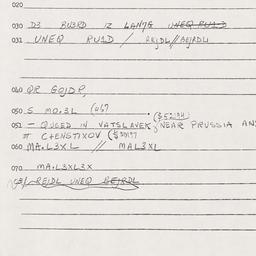 020
030 D3 RU3RD IZ LANTG UNEQ RU1D
031 UNEQ RU1D / REJDL//BEJRDLI
040 QR GOJDP,
050 S MO.3L (067
($52194)
051 — QUOED IN VATSLAVEK, NEAR PRUSSIA AN
CHENSTIXOV ($50197
060 MA.L3XL // MAL3XL
070 MA.L3XL3X
031 REJDL UNEQ BEJRDL